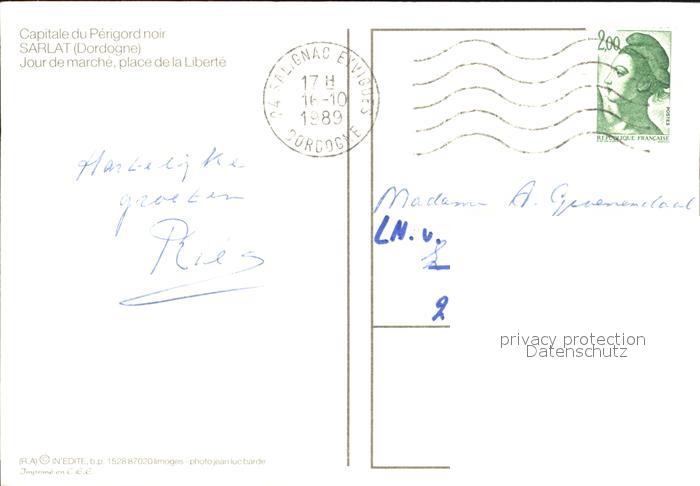 Capitale du Périgord noir
SARLAT (Dordogne)
Jour de marché, place de la Liberté
24 SALIGNAC EYVIGUES
17 H
16-10
1989
DORDOGNE
2,00
POSTES
REPUBLIQUE FRANÇAISE
Hartelijke
groeten
Riés
Madame A. Groenendaal
LH. v.
2
privacy protection
Datenschutz
(R.A) © IN'EDITE, b.p. 1528 87020 limoges - photo jean luc barde
Imprimé en C.E.E.